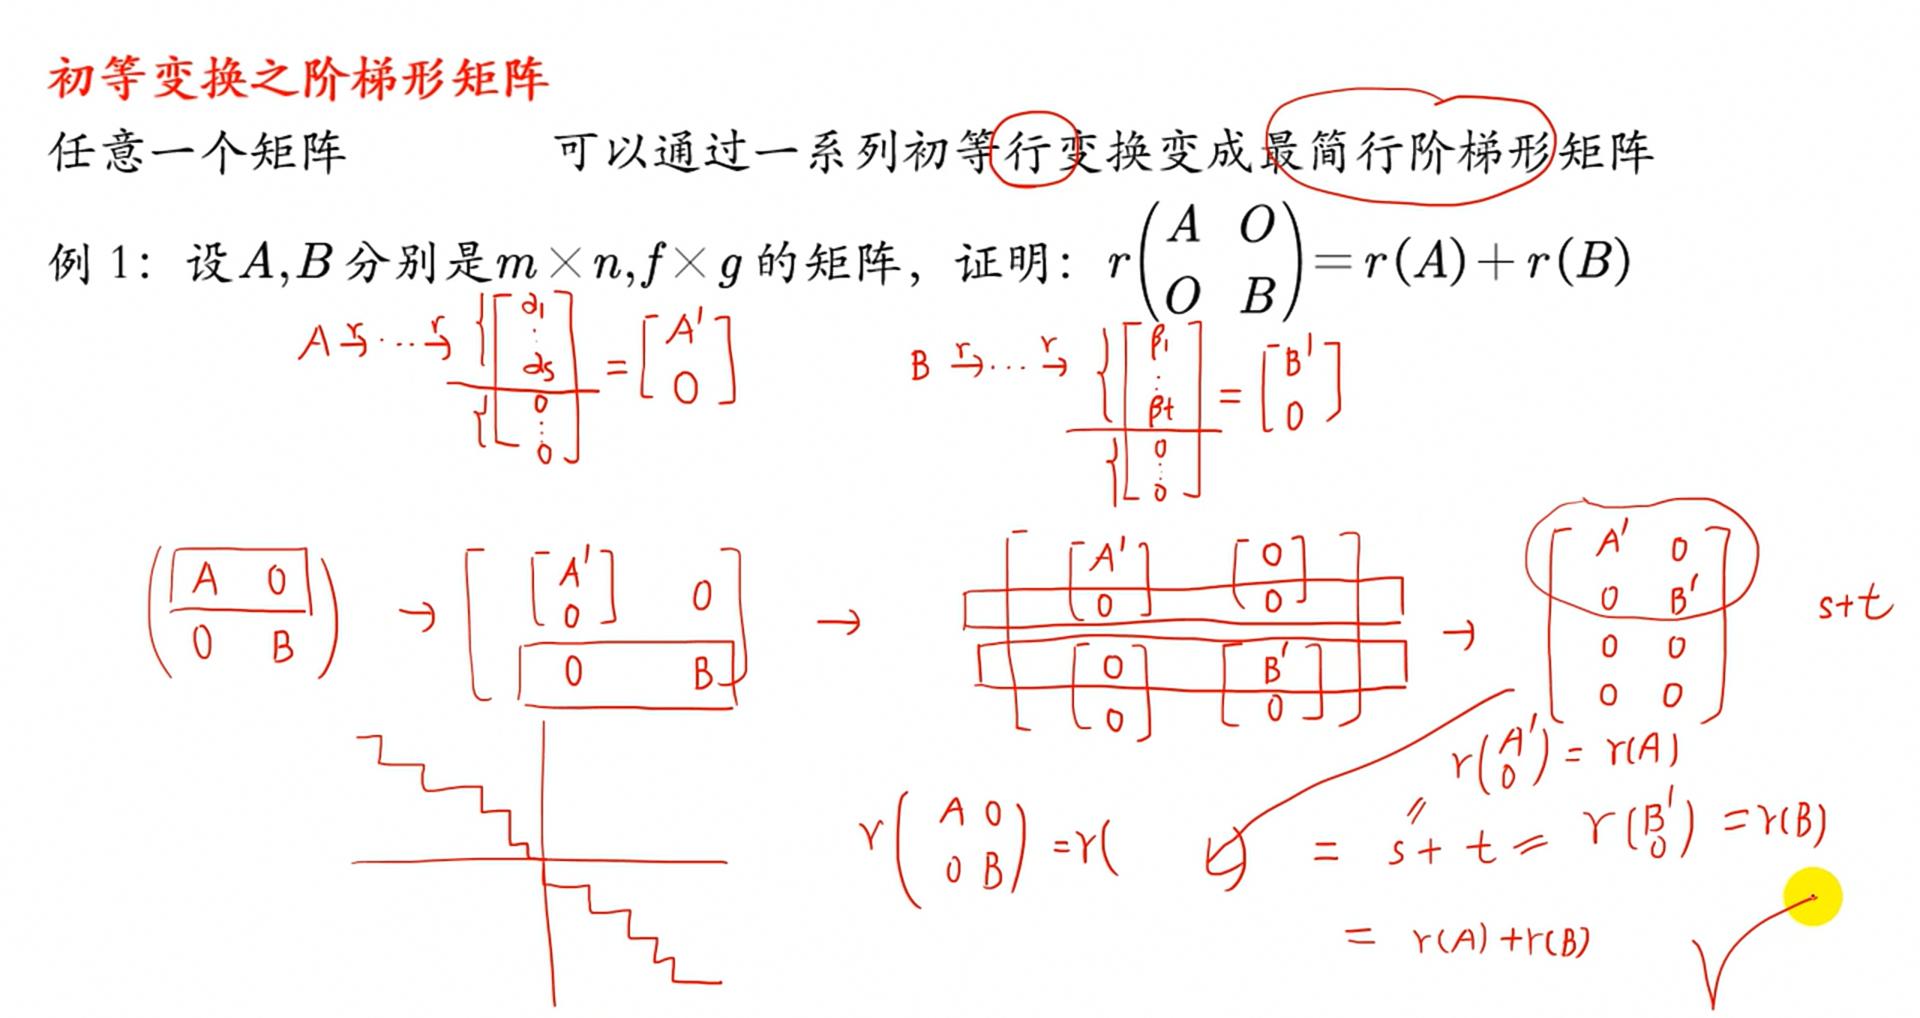 初等变换之阶梯形矩阵
任意一个矩阵 可以通过一系列初等行变换变成最简行阶梯形矩阵
例 1：设A,B分别是m×n,f×g的矩阵，证明：r(A O; O B)=r(A)+r(B)
A →r ··· →r [α1 ⋮ αs 0 ⋮ 0] = [A' 0] B →r ··· →r [β1 ⋮ βt 0 ⋮ 0] = [B' 0]
(A 0; 0 B) → [[A' 0] 0; 0 B] → [[A' 0] [0 0]; [0 0] [B' 0]] → [A' 0; 0 B'; 0 0; 0 0] s+t
r(A' 0) = r(A)
r(A 0; 0 B) = r( ) = s + t = r(B' 0) = r(B)
= r(A)+r(B)